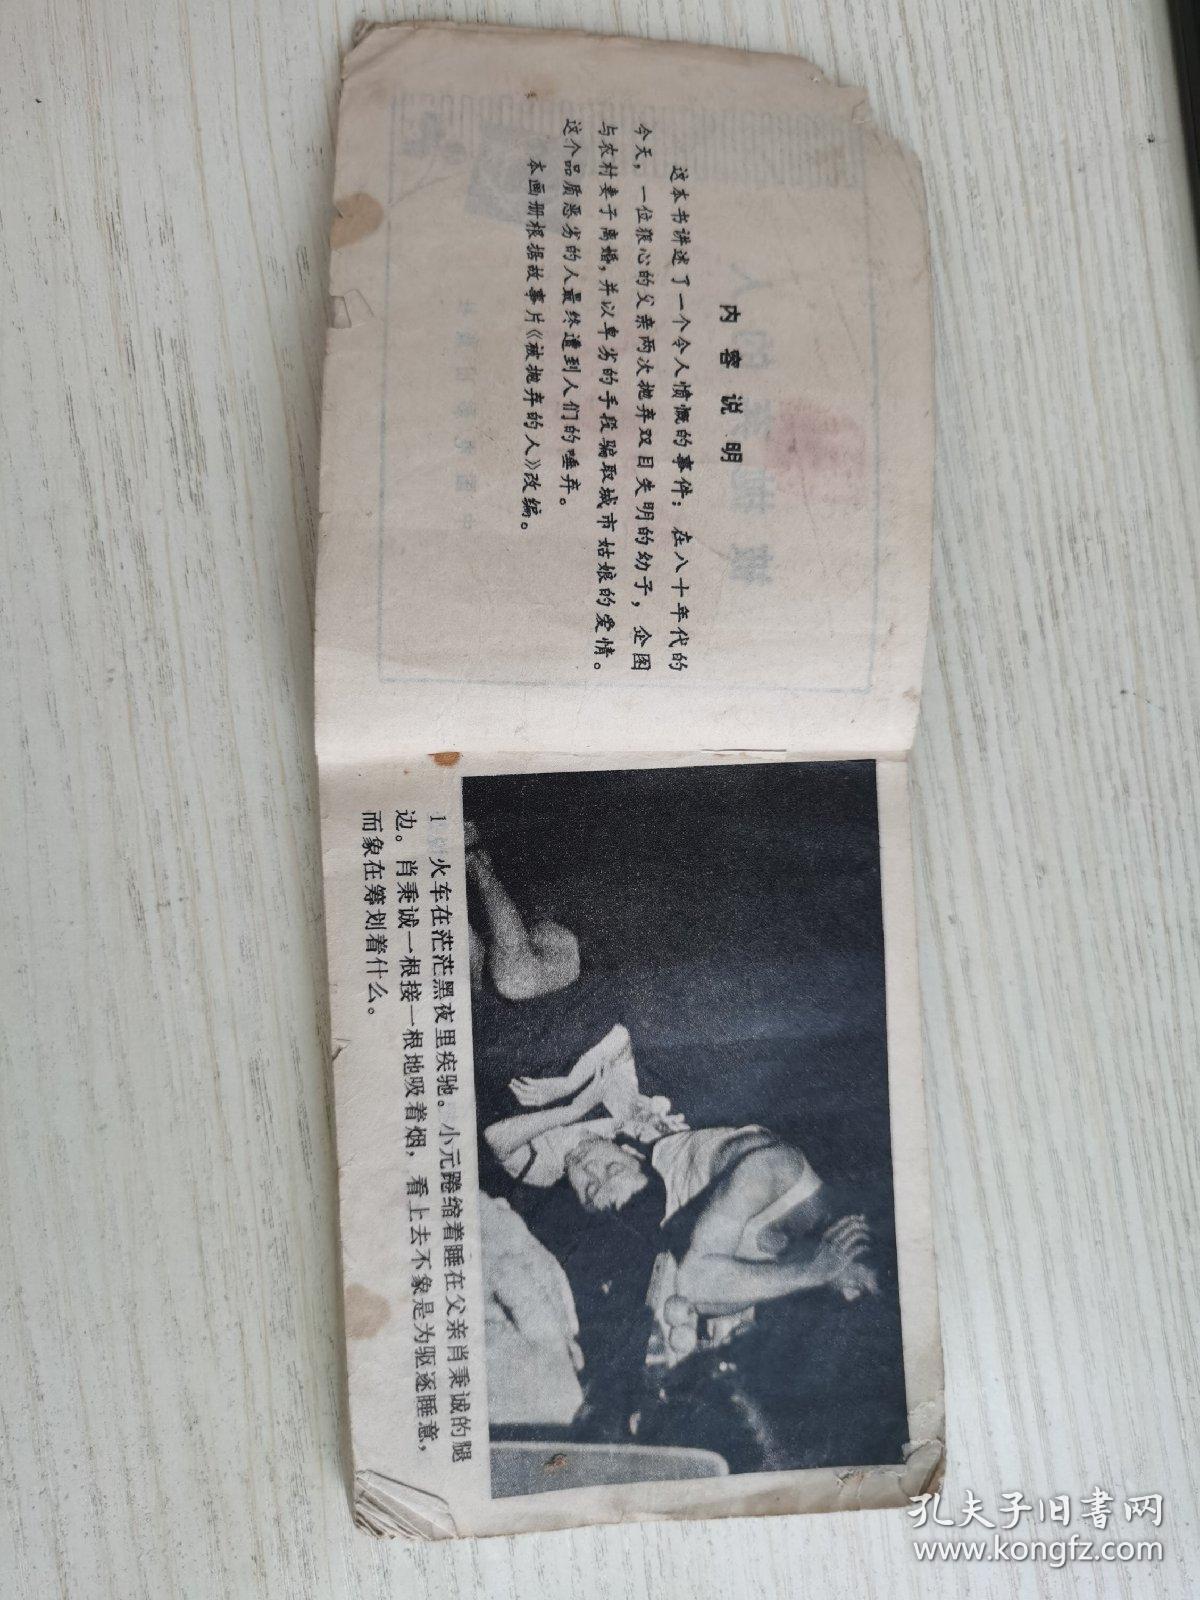 内容说明
这本书讲述了一个令人愤慨的事件：在八十年代的
今天，一位狠心的父亲两次抛弃双目失明的幼子，企图
与农村妻子离婚，并以卑劣的手段骗取城市姑娘的爱情。
这个品质恶劣的人最终遭到人们的唾弃。
本画册根据故事片《被抛弃的人》改编。
1 火车在茫茫黑夜里疾驰。小元踡缩着睡在父亲肖秉诚的腿
边。肖秉诚一根接一根地吸着烟，看上去不象是为驱逐睡意，
而象在筹划着什么。
孔夫子旧书网
www.kongfz.com